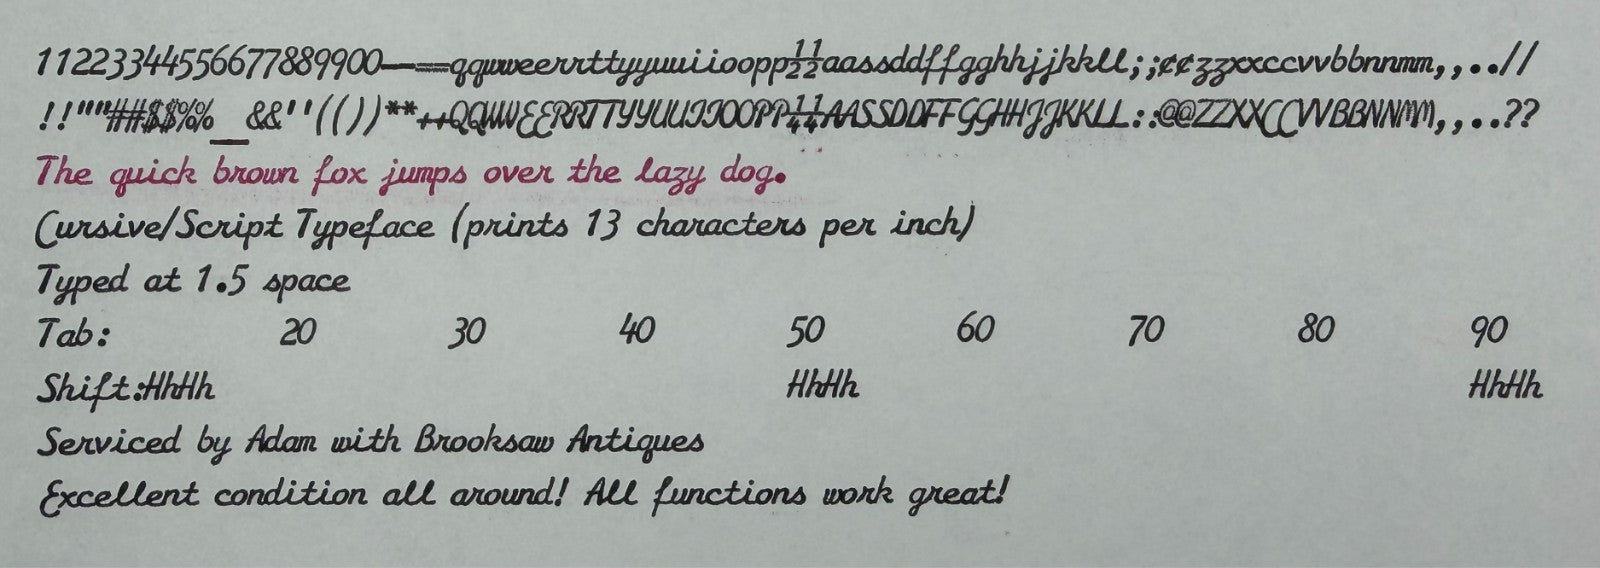 11223344556677889900--==qqwweerrttyyuuiioopp½½aassddffgghhjjkkll;;¢¢zzxxccvvbbnnmm,,..//
!!""##$$%%__&&''(())**++QQWWEERRTTYYUUIIOOPP¼¼AASSDDFFGGHHJJKKLL::@@ZZXXCCVVBBNNMM,,..??
The quick brown fox jumps over the lazy dog.
Cursive/Script Typeface (prints 13 characters per inch)
Typed at 1.5 space
Tab: 20 30 40 50 60 70 80 90
Shift:HhHh HhHh HhHh
Serviced by Adam with Brooksaw Antiques
Excellent condition all around! All functions work great!